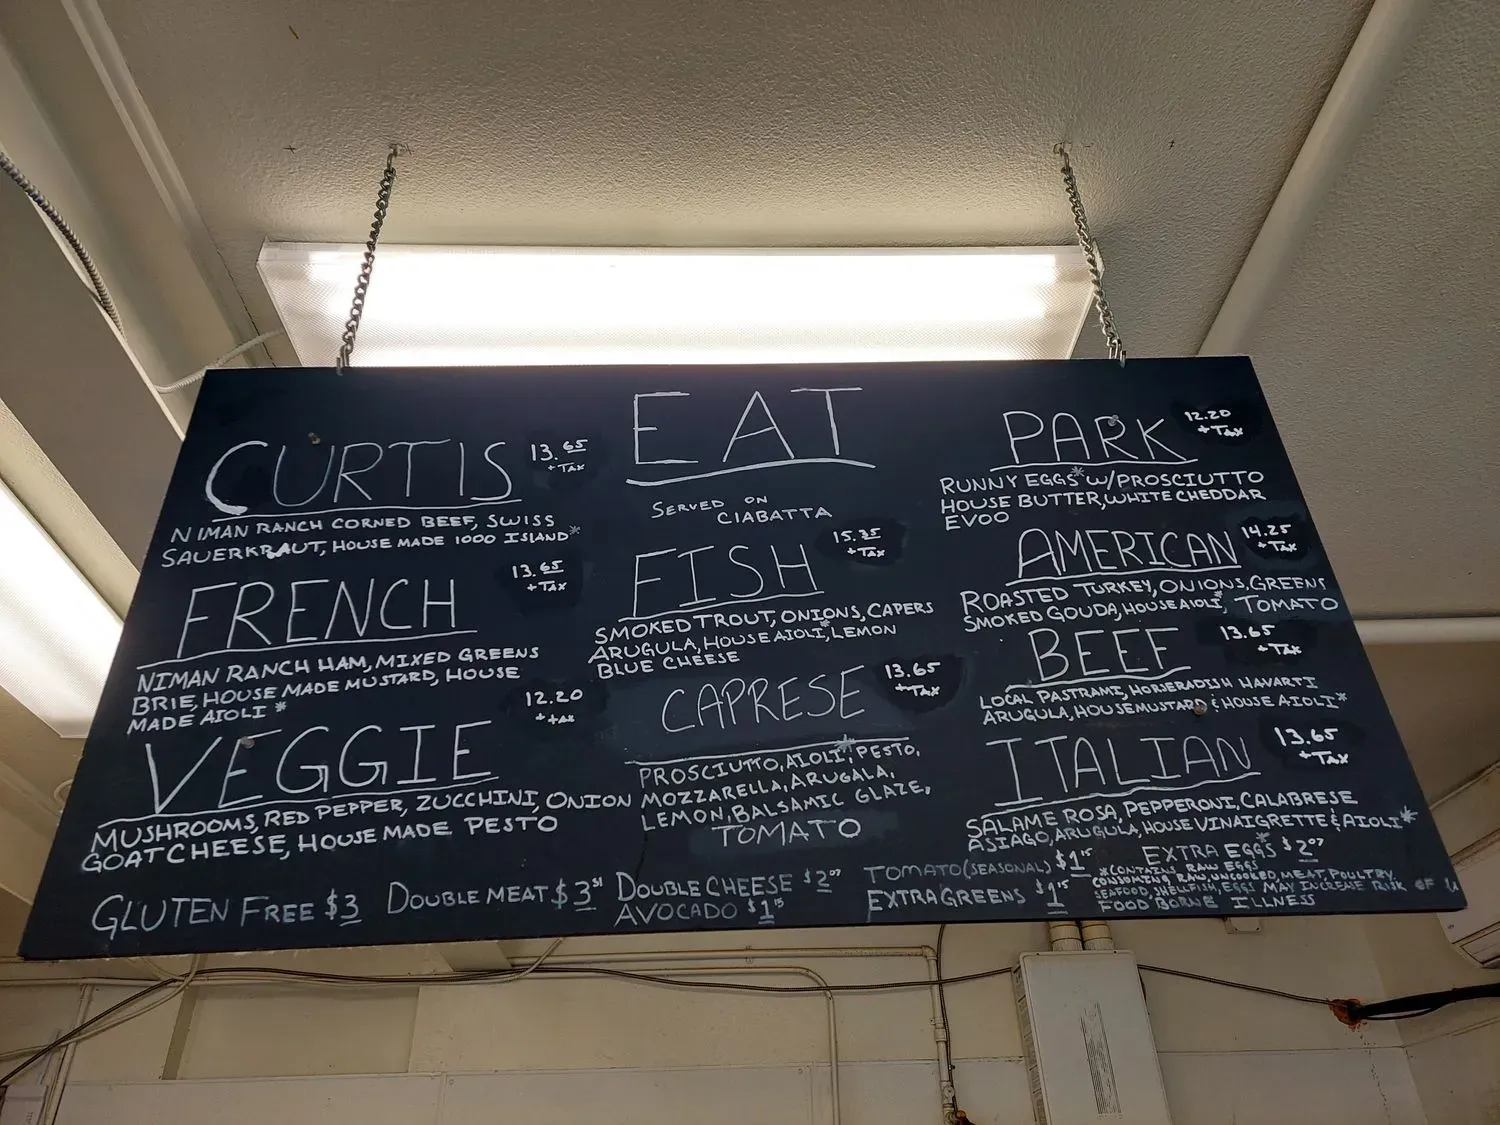 EAT
SERVED ON
CIABATTA
CURTIS 13.65
+ TAX
NIMAN RANCH CORNED BEEF, SWISS
SAUERKRAUT, HOUSE MADE 1000 ISLAND*
FRENCH 13.65
+ TAX
NIMAN RANCH HAM, MIXED GREENS
BRIE, HOUSE MADE MUSTARD, HOUSE
MADE AIOLI*
VEGGIE 12.20
+ TAX
MUSHROOMS, RED PEPPER, ZUCCHINI, ONION
GOAT CHEESE, HOUSE MADE PESTO
FISH 15.35
+ TAX
SMOKED TROUT, ONIONS, CAPERS
ARUGULA, HOUSE AIOLI*, LEMON
BLUE CHEESE
CAPRESE 13.65
+ TAX
PROSCIUTTO, AIOLI*, PESTO,
MOZZARELLA, ARUGALA,
LEMON, BALSAMIC GLAZE,
TOMATO
PARK 12.20
+ TAX
RUNNY EGGS* W/PROSCIUTTO
HOUSE BUTTER, WHITE CHEDDAR
EVOO
AMERICAN 14.25
+ TAX
ROASTED TURKEY, ONIONS, GREENS
SMOKED GOUDA, HOUSE AIOLI*, TOMATO
BEEF 13.65
+ TAX
LOCAL PASTRAMI, HORSERADISH HAVARTI
ARUGULA, HOUSE MUSTARD & HOUSE AIOLI*
ITALIAN 13.65
+ TAX
SALAME ROSA, PEPPERONI, CALABRESE
ASIAGO, ARUGULA, HOUSE VINAIGRETTE & AIOLI*
GLUTEN FREE $3
DOUBLE MEAT $3.51
DOUBLE CHEESE $2.07
AVOCADO $1.15
TOMATO (SEASONAL) $1.15
EXTRA GREENS $1.15
EXTRA EGGS* $2.07
*CONTAINS RAW EGGS
CONSUMING RAW, UNCOOKED, MEAT, POULTRY,
SEAFOOD, SHELLFISH, EGGS MAY INCREASE RISK OF
FOOD BORNE ILLNESS